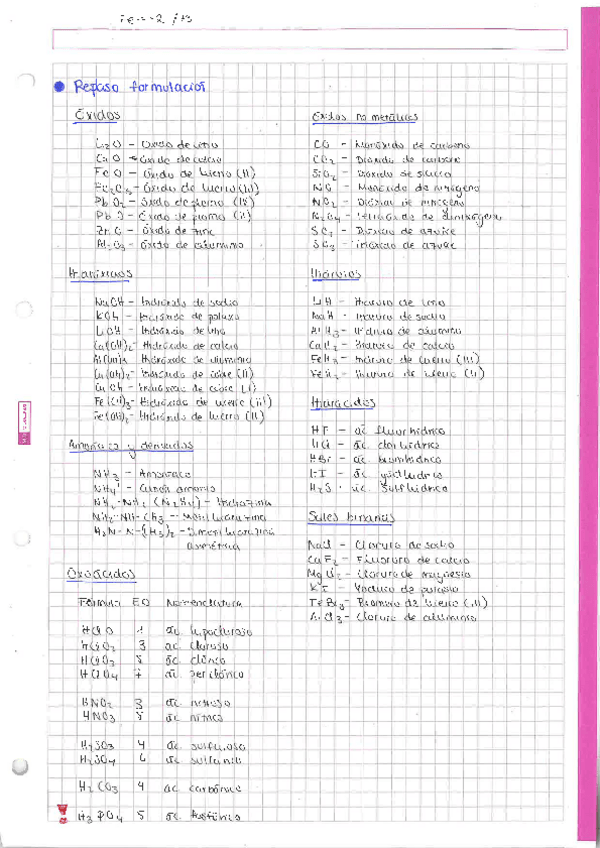 Repaso formulación
Óxidos
Li2O - Óxido de litio
CaO - Óxido de calcio
FeO - Óxido de hierro (II)
Fe2O3 - Óxido de hierro (III)
PbO2 - Óxido de plomo (IV)
PbO - Óxido de plomo (II)
ZnO - Óxido de zinc
Al2O3 - Óxido de aluminio
Hidróxidos
NaOH - Hidróxido de sodio
KOH - Hidróxido de potasio
LiOH - Hidróxido de litio
Ca(OH)2 - Hidróxido de calcio
Hidróxido de aluminio
Cu(OH)2 - Hidróxido de cobre (II)
CuOH - Hidróxido de cobre (I)
Fe(OH)3 - Hidróxido de hierro (III)
Fe(OH)2 - Hidróxido de hierro (II)
Amoniaco y derivados
NH3 - Amoniaco
NH4+ - Catión amonio
NH2-NH2 (N2H4) - Hidrazina
NH2-NH-CH3 - Metilhidrazina
H2N-N-(CH3)2 - Dimetilhidrazina
asimétrica
Oxoácidos
Fórmula EO Nomenclatura
HClO 1 ác. hipocloroso
HClO2 3 ac. cloroso
HClO3 5 ác. clórico
HClO4 7 ác. perclórico
HNO2 3 ác. nitroso
HNO3 5 ác. nítrico
H2SO3 4 ác. sulfuroso
H2SO4 6 ác. sulfúrico
H2CO3 4 ac. carbónico
H3PO4 5 ác. fosfórico
Óxidos no metálicos
CO - Monóxido de carbono
CO2 - Dióxido de carbono
SiO2 - Dióxido de silicio
NO - Monóxido de nitrógeno
NO2 - Dióxido de nitrógeno
N2O4 - Tetraóxido de dinitrógeno
SO2 - Dióxido de azufre
SO3 - Trióxido de azufre
Hidruros
LiH - Hidruro de litio
NaH - Hidruro de sodio
AlH3 - Hidruro de aluminio
CaH2 - Hidruro de calcio
FeH3 - Hidruro de hierro (III)
FeH2 - Hidruro de hierro (II)
Hidrácidos
HF - ác fluorhídrico
HCl - ác. clorhídrico
HBr - ac. bromhídrico
HI - ác. yodhídrico
H2S - ác. sulfhídrico
Sales binarias
NaCl - Cloruro de sodio
CaF2 - Fluoruro de calcio
MgCl2 - Cloruro de magnesio
KI - Yoduro de potasio
FeBr3 - Bromuro de hierro (III)
AlCl3 - Cloruro de aluminio